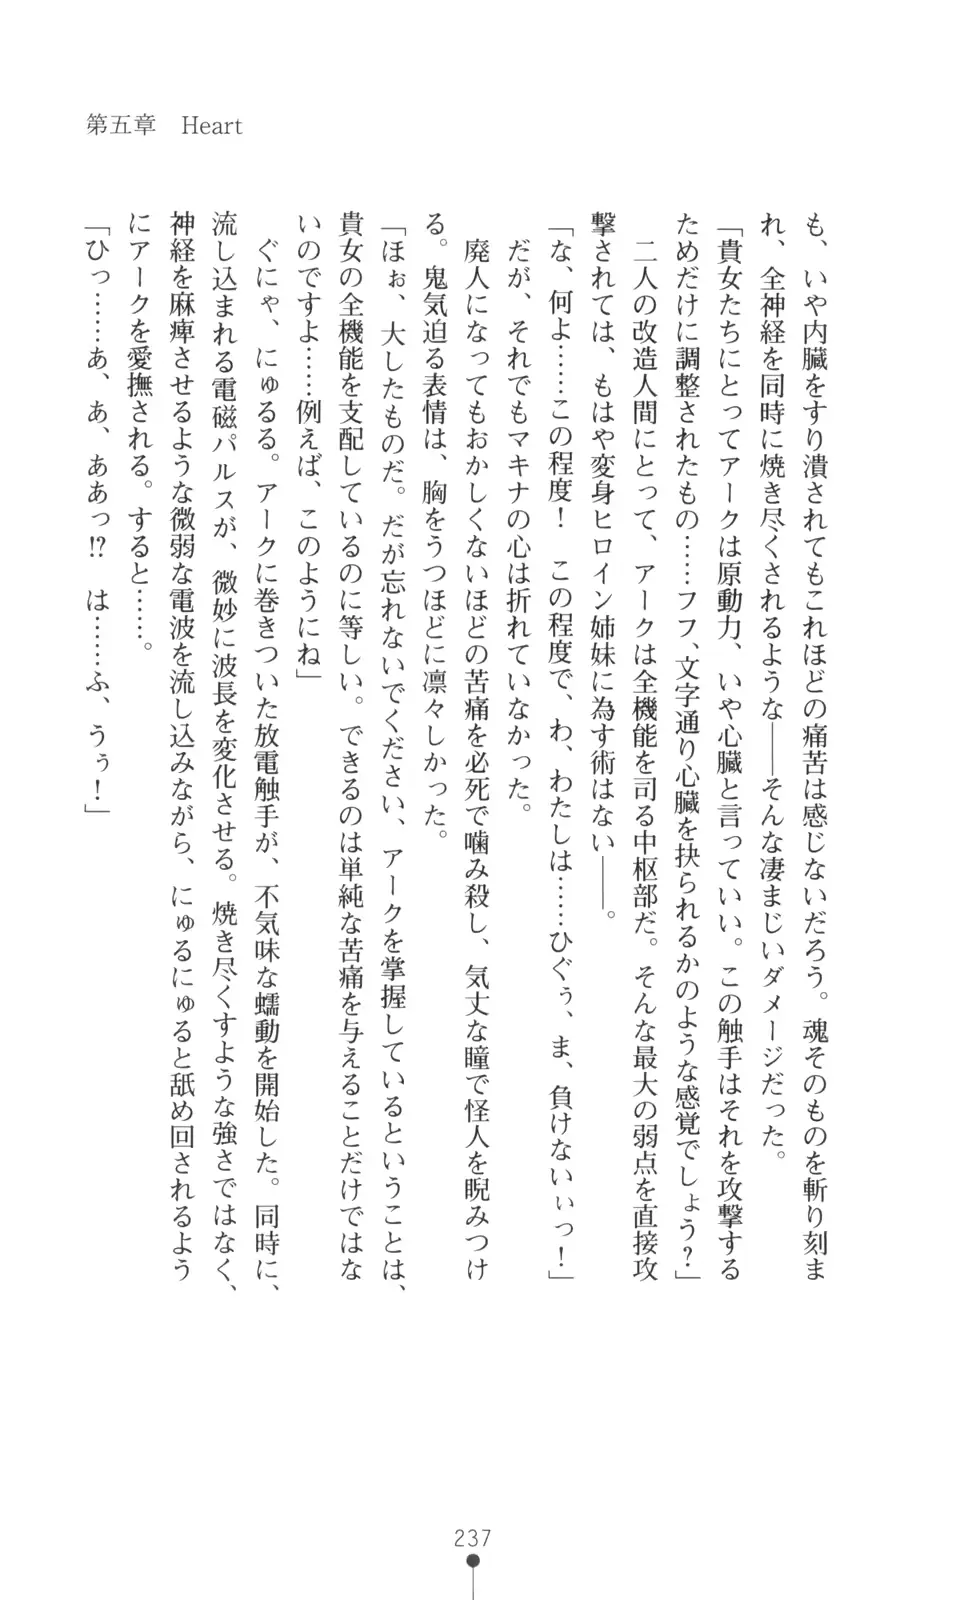 第五章　Heart
も、いや内臓をすり潰されてもこれほどの痛苦は感じないだろう。魂そのものを斬り刻ま
れ、全神経を同時に焼き尽くされるような――そんな凄まじいダメージだった。
「貴女たちにとってアークは原動力、いや心臓と言っていい。この触手はそれを攻撃する
ためだけに調整されたもの……フフ、文字通り心臓を抉られるかのような感覚でしょう?」
　二人の改造人間にとって、アークは全機能を司る中枢部だ。そんな最大の弱点を直接攻
撃されては、もはや変身ヒロイン姉妹に為す術はない――。
「な、何よ……この程度!　この程度で、わ、わたしは……ひぐぅ、ま、負けないぃっ!」
　だが、それでもマキナの心は折れていなかった。
　廃人になってもおかしくないほどの苦痛を必死で噛み殺し、気丈な瞳で怪人を睨みつけ
る。鬼気迫る表情は、胸をうつほどに凛々しかった。
「ほぉ、大したものだ。だが忘れないでください、アークを掌握しているということは、
貴女の全機能を支配しているのに等しい。できるのは単純な苦痛を与えることだけではな
いのですよ……例えば、このようにね」
　ぐにゃ、にゅるる。アークに巻きついた放電触手が、不気味な蠕動を開始した。同時に、
流し込まれる電磁パルスが、微妙に波長を変化させる。焼き尽くすような強さではなく、
神経を麻痺させるような微弱な電波を流し込みながら、にゅるにゅると舐め回されるよう
にアークを愛撫される。すると……。
「ひっ……あ、あ、ああっ!?　は……ふ、うぅ!」
237